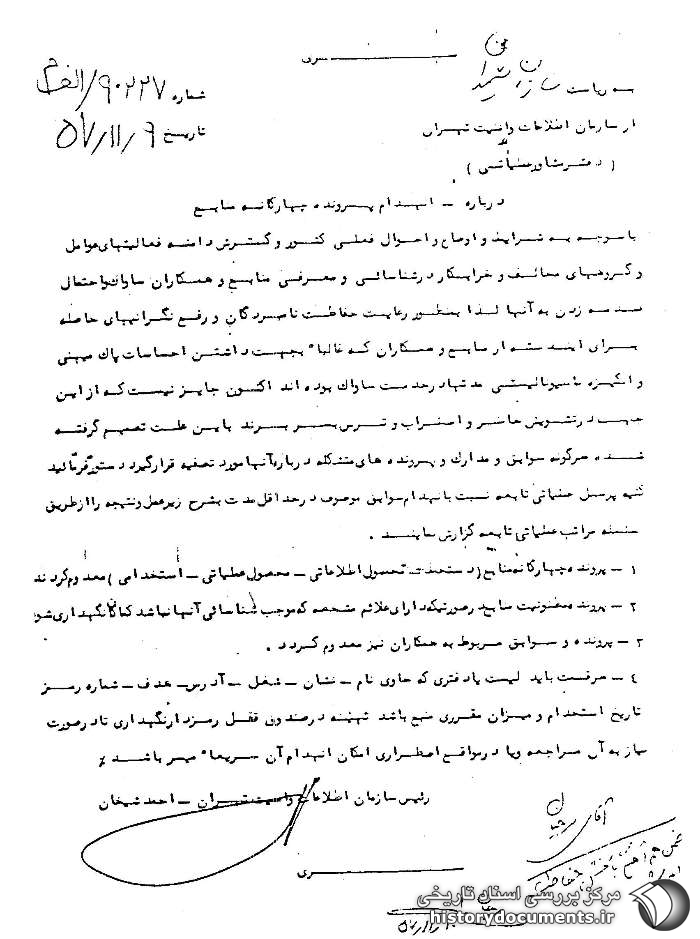 سری
شماره ۹۰۲۲۷/الف م
به ریاست سازمان شمیران
تاریخ ۵۷/۱۱/۹
از سازمان اطلاعات و امنیت تهران
( دفتر مشاور عملیاتی )
درباره – انهدام پرونده چهارگانه منابع
با توجه به شرایط و اوضاع و احوال فعلی کشور و گسترش دامنه فعالیتهای عوامل
و گروههای مخالف و خرابکار در شناسائی و معرفی منابع و همکاران ساواک و احتمال
صدمه زدن به آنها لذا بمنظور رعایت حفاظت نامبردگان و رفع نگرانیهای حاصله
برای ایندسته از منابع و همکاران که غالبا" بجهت داشتن احساسات پاک میهنی
و انگیزه ناسیونالیستی مدتها در خدمت ساواک بوده اند اکنون جایز نیست که از این
جهت در تشویش خاطر و اضطراب و ترس بسر برند باین علت تصمیم گرفته
شده هرگونه سوابق و مدارک و پرونده های متشکله درباره آنها مورد تصفیه قرار گیرد دستور فرمائید
کلیه پرسنل عملیاتی تابعه نسبت بانهدام سوابق موصوف در حداقل مدت بشرح زیر عمل و نتیجه را از طریق
سلسله مراتب عملیاتی تابعه گزارش نمایند .
۱ – پرونده چهارگانه منابع ( دستمحت تحصول اطلاعاتی – محصول عملیاتی – استخدامی ) معدوم گردند
۲ – پرونده مظنونیت منابع در صورتیکه دارای علائم مشخصه که موجب شناسائی آنها نباشد کماکان نگهداری شود
۳ – پرونده و سوابق مربوط به همکاران نیز معدوم گردد .
٤ – هر قسمت باید لیست یا دفتری که حاوی نام – نشان – شغل – آدرس – هدف – شماره رمز
تاریخ استخدام و میزان مقرری منبع باشد تهیه و در صندوق قفل رمزدار نگهداری تا در صورت
نیاز به آن مراجعه و یا در مواقع اضطراری امکان انهدام آن سریعا" میسر باشد ٪
رئیس سازمان اطلاعات و امنیت تهران – احمد شیخان
آقای
سری
مرکز بررسی اسناد تاریخی
historydocuments.ir